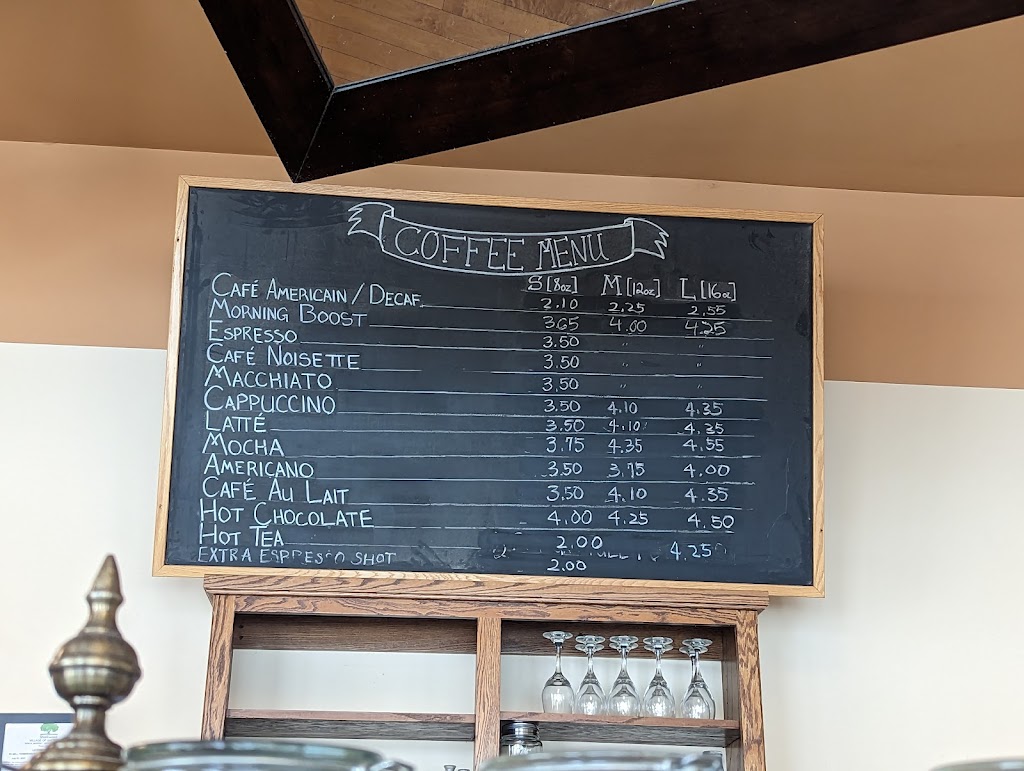 COFFEE MENU
S [8oz] M [12oz] L [16oz]
CAFÉ AMERICAIN / DECAF 2.10 2.25 2.55
MORNING BOOST 3.65 4.00 4.25
ESPRESSO 3.50 " "
CAFÉ NOISETTE 3.50 " "
MACCHIATO 3.50 " "
CAPPUCCINO 3.50 4.10 4.35
LATTÉ 3.50 4.10 4.35
MOCHA 3.75 4.35 4.55
AMERICANO 3.50 3.75 4.00
CAFÉ AU LAIT 3.50 4.10 4.35
HOT CHOCOLATE 4.00 4.25 4.50
HOT TEA 2.00 4.25
EXTRA ESPRESSO SHOT 2.00